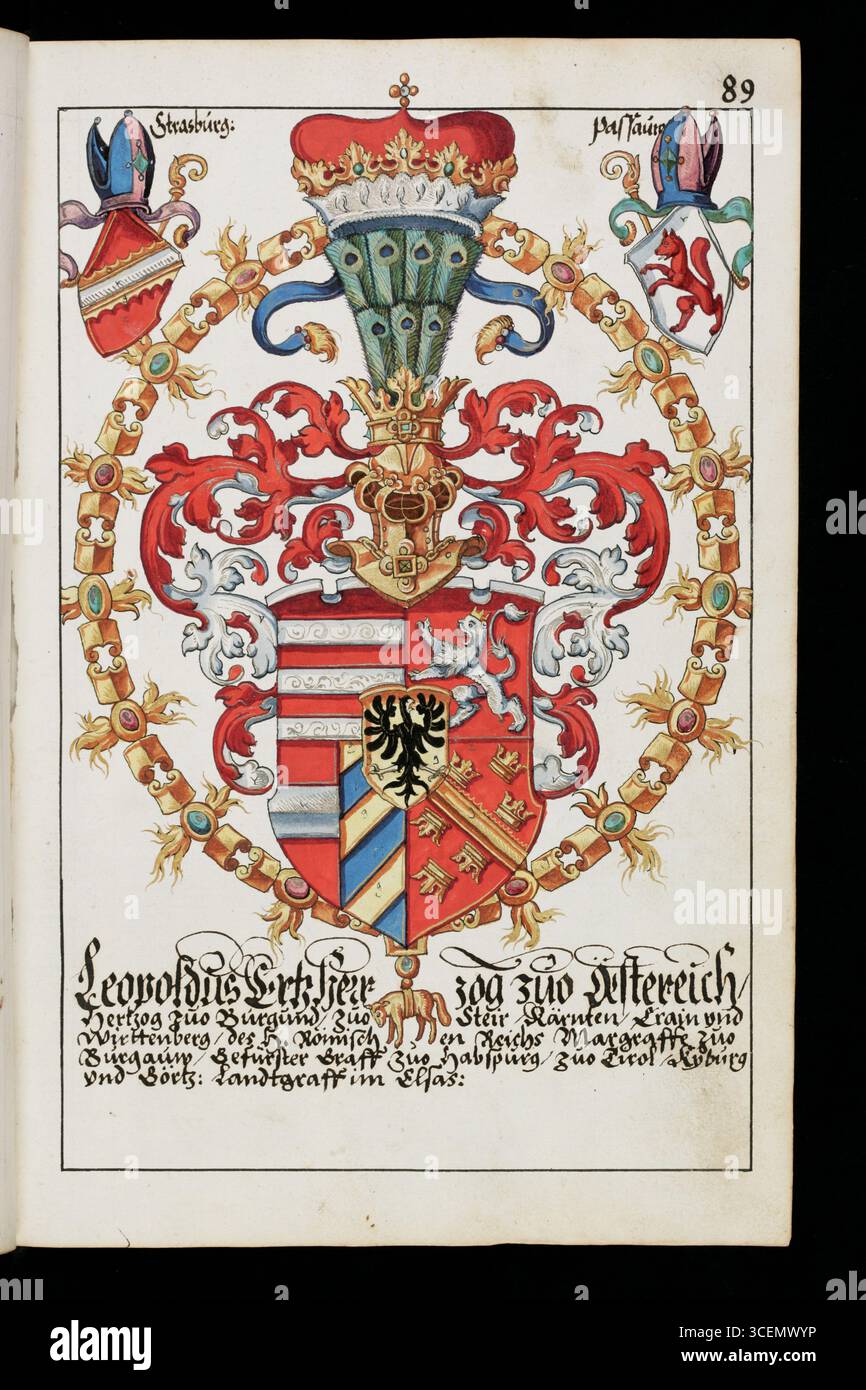 89
Strasburg:
Passaurg
Leopoldus Ertzherrzog zuo Öestereich/
Hertzog zuo Burgund/ zuo Steir/ Kärnten/ Crain vnd
Wirttenberg/ des H. Römischen Reichs Margraffe zuo
Burgauw/ Gefürster Graff zuo Habspurg/ zuo Tirol/ Kyburg
vnd Görtz: Landtgraff im Elsas:
alamy
Image ID: 3CEMWYP
www.alamy.com